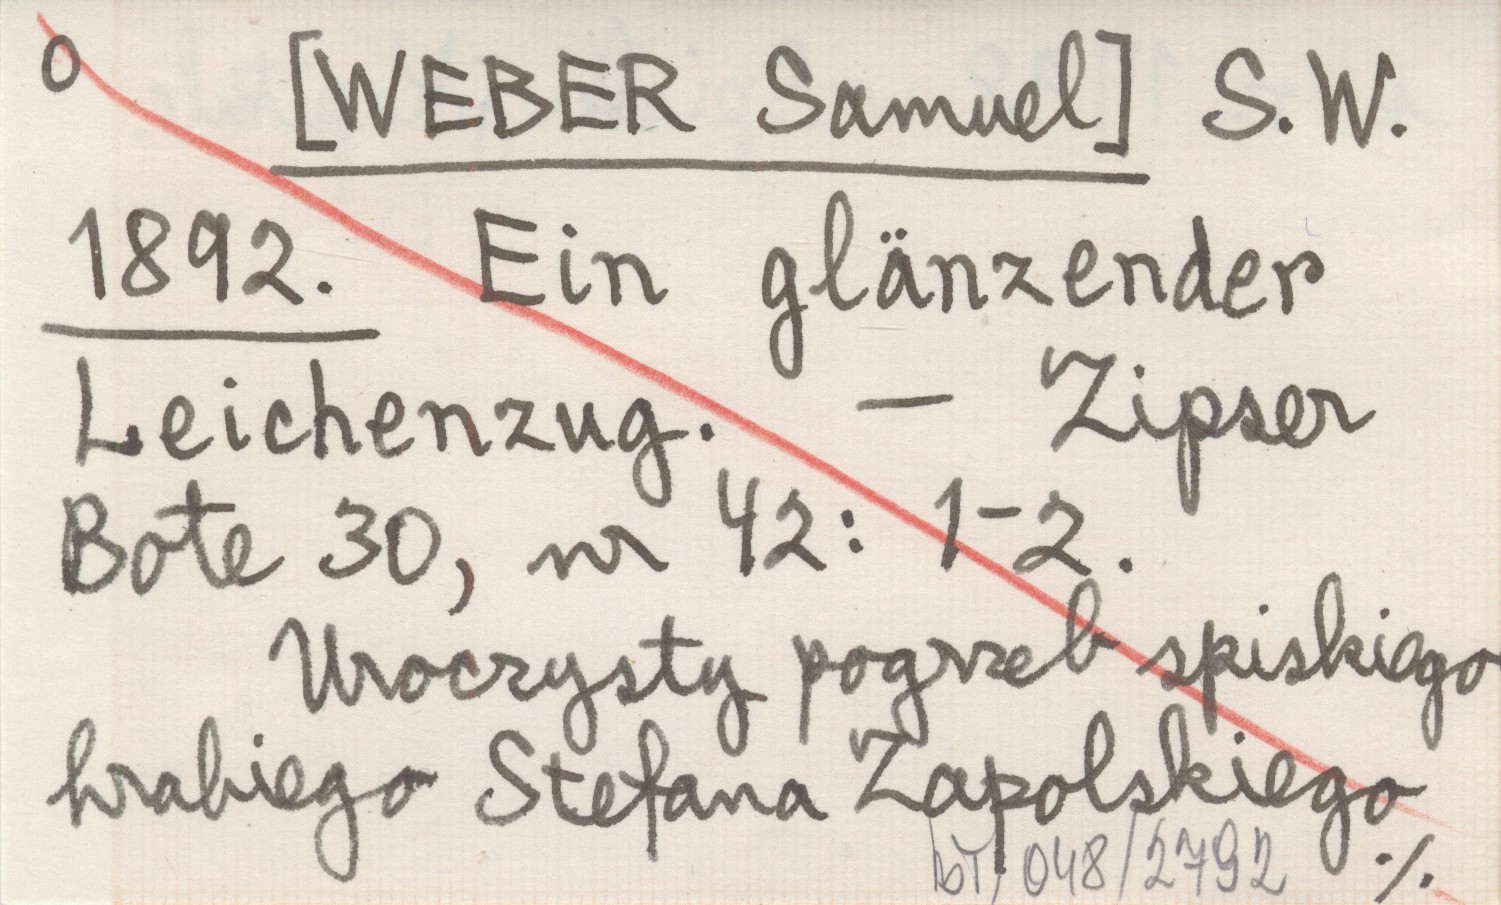 0 [WEBER Samuel] S.W.
1892. Ein glänzender
Leichenzug. — Zipser
Bote 30, nr 42: 1-2.
Uroczysty pogrzeb spiskiego
hrabiego Stefana Zapolskiego
bT/048/2792 ./.